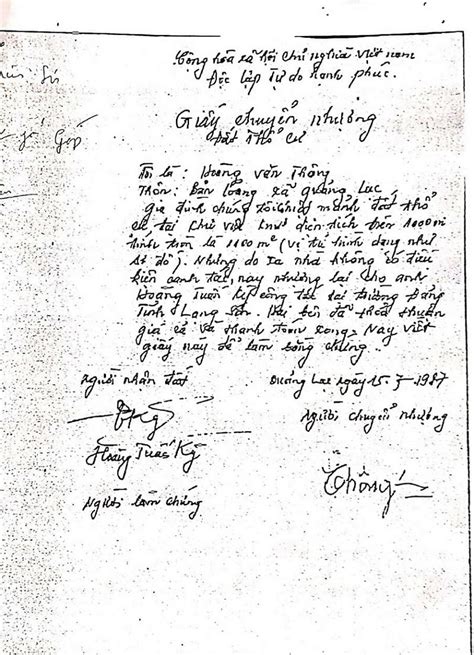 Cộng hòa xã hội chủ nghĩa Việt nam
Độc lập Tự do hạnh phúc.
Giấy chuyển nhượng
Đất Thổ Cư
Tôi là : Hoàng văn Thông
Thôn: Bản xã quảng Lạc
gia đình chúng tôi mảnh đất thổ
cư tại khu diện tích trên
hình tròn là 1100 m² (vị trí hình dạng như
sơ đồ). Nhưng do xa nhà không có điều
kiện canh tác, nay nhượng lại cho anh
Hoàng Tuấn Kỳ công tác tại trường Đảng
Tỉnh Lạng Sơn. Hai bên đã thỏa thuận
giá cả và thanh toán xong. Nay viết
giấy này để làm bằng chứng.
người nhận đất
Quảng Lạc ngày 15-7-1987
Người chuyển nhượng
Hoàng Tuấn Kỳ
Thông
Người làm chứng